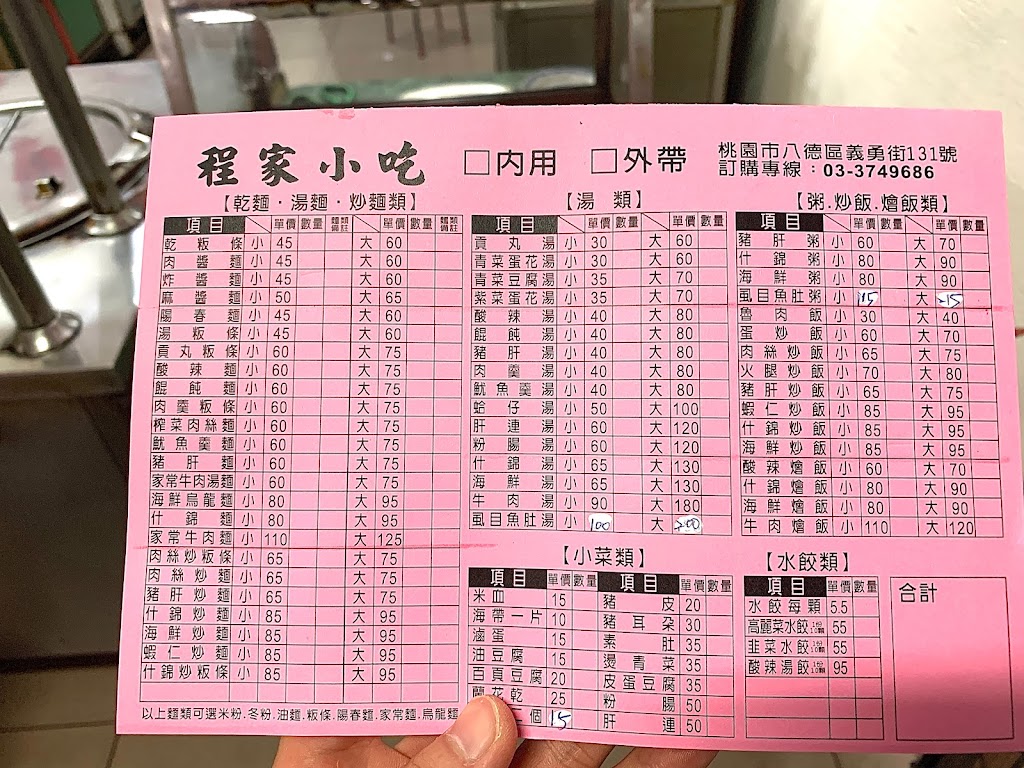 程家小吃 □內用 □外帶
桃園市八德區義勇街131號
訂購專線：03-3749686
【乾麵・湯麵・炒麵類】
項目 單價 數量 麵類備註 單價 數量 麵類備註
乾粄條 小 45 大 60
肉醬麵 小 45 大 60
炸醬麵 小 45 大 60
麻醬麵 小 50 大 65
陽春麵 小 45 大 60
湯粄條 小 45 大 60
貢丸粄條 小 60 大 75
酸辣麵 小 60 大 75
餛飩麵 小 60 大 75
肉羹粄條 小 60 大 75
榨菜肉絲麵 小 60 大 75
魷魚羹麵 小 60 大 75
豬肝麵 小 60 大 75
家常牛肉湯麵 小 60 大 75
海鮮烏龍麵 小 80 大 95
什錦麵 小 80 大 95
家常牛肉麵 小 110 大 125
肉絲炒粄條 小 65 大 75
肉絲炒麵 小 65 大 75
豬肝炒麵 小 65 大 75
什錦炒麵 小 85 大 95
海鮮炒麵 小 85 大 95
蝦仁炒麵 小 85 大 95
什錦炒粄條 小 85 大 95
以上麵類可選米粉.冬粉.油麵.粄條.陽春麵.家常麵.烏龍麵
【湯類】
項目 單價 數量 單價 數量
貢丸湯 小 30 大 60
青菜蛋花湯 小 30 大 60
青菜豆腐湯 小 35 大 70
紫菜蛋花湯 小 35 大 70
酸辣湯 小 40 大 80
餛飩湯 小 40 大 80
豬肝湯 小 40 大 80
肉羹湯 小 40 大 80
魷魚羹湯 小 40 大 80
蛤仔湯 小 50 大 100
肝連湯 小 60 大 120
粉腸湯 小 60 大 120
什錦湯 小 65 大 130
海鮮湯 小 65 大 130
牛肉湯 小 90 大 180
虱目魚肚湯 小 100 大 200
【粥.炒飯.燴飯類】
項目 單價 數量 單價 數量
豬肝粥 小 60 大 70
什錦粥 小 80 大 90
海鮮粥 小 80 大 90
虱目魚肚粥 小 大
魯肉飯 小 30 大 40
蛋炒飯 小 60 大 70
肉絲炒飯 小 65 大 75
火腿炒飯 小 70 大 80
豬肝炒飯 小 65 大 75
蝦仁炒飯 小 85 大 95
什錦炒飯 小 85 大 95
海鮮炒飯 小 85 大 95
酸辣燴飯 小 60 大 70
什錦燴飯 小 80 大 90
海鮮燴飯 小 80 大 90
牛肉燴飯 小 110 大 120
【小菜類】
項目 單價 數量 項目 單價 數量
米血 15 豬皮 20
海帶一片 10 豬耳朵 30
滷蛋 15 素肚 35
油豆腐 15 燙青菜 35
百頁豆腐 20 皮蛋豆腐 35
蘭花乾 25 粉腸 50
個 15 肝連 50
【水餃類】
項目 單價 數量
水餃每顆 5.5
高麗菜水餃 1份10顆 55
韭菜水餃 1份10顆 55
酸辣湯餃 1份10顆 95
合計